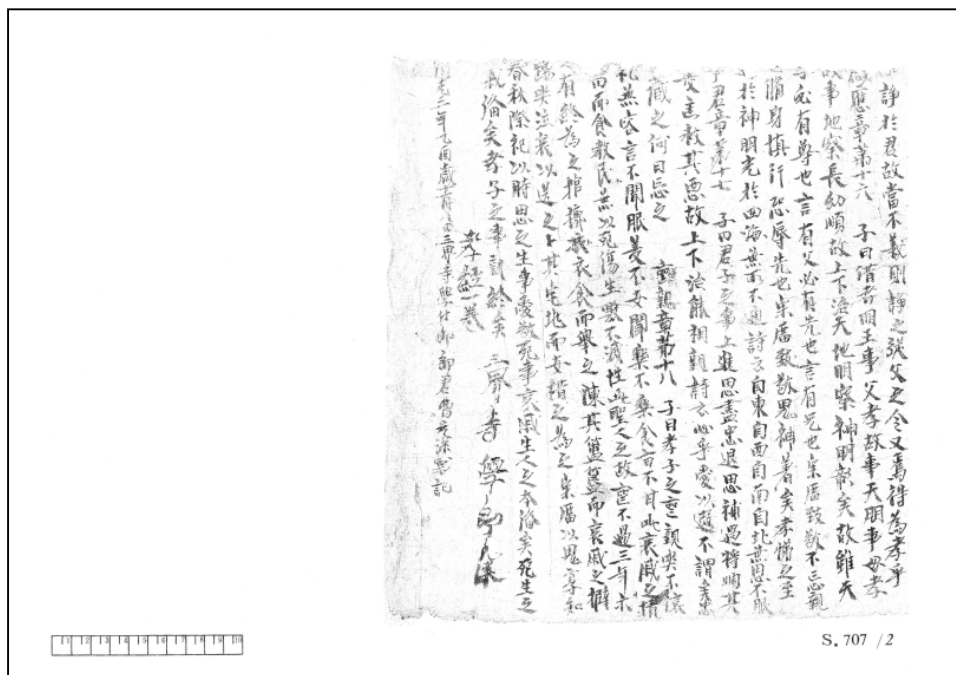 諍於君故當不義則諍之從父之令又焉得為孝乎
應章第十六 子曰昔者明王事父孝故事天明事母孝
故事地察長幼順故上下治天地明察神明彰矣故雖天
子必有尊也言有父必有先也言有兄也宗廟致敬不忘親
脩身慎行恐辱先也宗廟致敬鬼神著矣孝悌之至
於神明光於四海無所不通詩云自東自西自南自北無思不服
事君章第十七 子曰君子之事上進思盡忠退思補過將順其
美匡救其惡故上下治能相親詩云心乎愛以遐不謂矣忠
藏之何日忘之 喪親章第十八 子曰孝子之喪親哭不偯
礼無容言不聞服美不安聞樂不樂食旨不甘此哀慼之情
而而食教民無以死傷生毀不滅性此聖人之政喪不過三年示
有終為之棺槨衣食而舉之陳其簠簋而哀慼之擗
踴哭泣哀以送之卜其宅地而安措之為之宗廟以鬼享如
春秋祭祀以時思之生事愛敬死事哀慼生人之本盡矣死生之
義備矣孝子之事親終矣 三界寺學郎
孝經一卷
同光三年乙酉歲 三界寺學仕郎郎君曹元深寫記
S. 707 /2
1 2 3 4 5 6 7 8 9 10